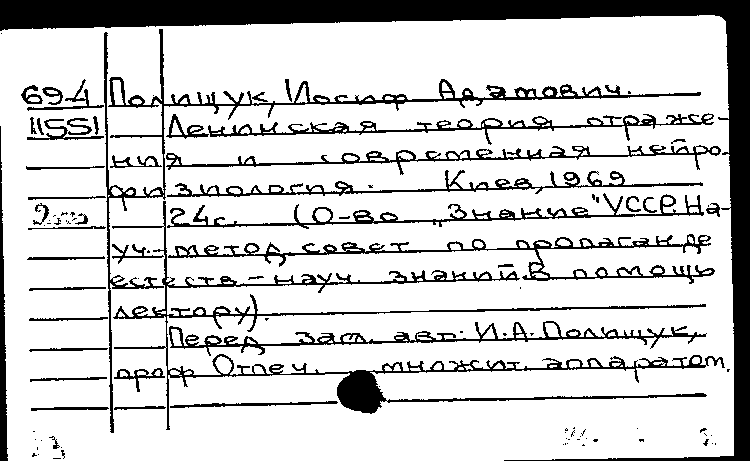 69-4 Полищук, Иосиф Адамович.
11551 Ленинская теория отраже-
ния и современная нейро-
физиология. Киев, 1969
24с. (О-во „Знание" УССР. На-
уч.-метод. совет по пропаганде
естеств-науч. знаний. В помощь
лектору).
Перед загл. авт: И.А. Полищук,
проф Отпеч. множит. аппаратом.